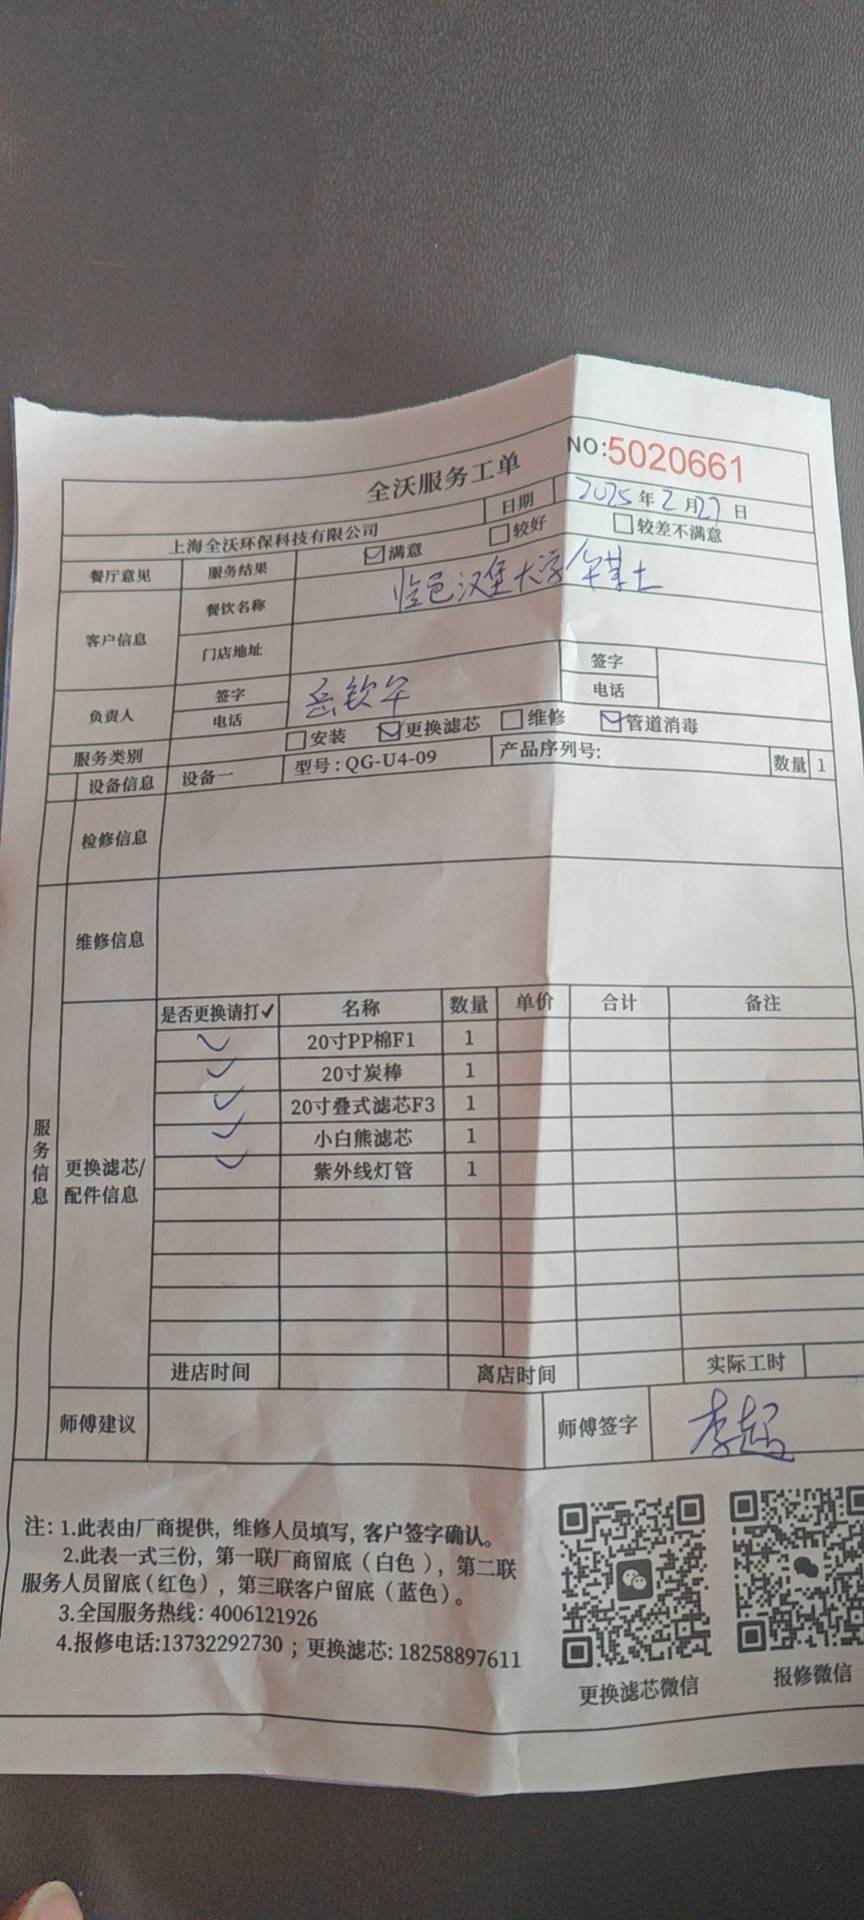 NO:5020661
全沃服务工单
上海全沃环保科技有限公司 日期 2025年2月27日
餐厅意见 服务结果 ☑满意 □较好 □较差不满意
客户信息 餐饮名称 临邑汉堡大学
门店地址
负责人 签字 岳钦军 签字
电话 电话
服务类别 □安装 ☑更换滤芯 □维修 ☑管道消毒
设备信息 设备一 型号:QG-U4-09 产品序列号: 数量 1
检修信息
维修信息
服务信息
更换滤芯/配件信息
是否更换请打✓ 名称 数量 单价 合计 备注
✓ 20寸PP棉F1 1
✓ 20寸炭棒 1
✓ 20寸叠式滤芯F3 1
✓ 小白熊滤芯 1
✓ 紫外线灯管 1
进店时间 离店时间 实际工时
师傅建议 师傅签字 李超
注: 1.此表由厂商提供, 维修人员填写, 客户签字确认。
2.此表一式三份, 第一联厂商留底(白色), 第二联
服务人员留底(红色), 第三联客户留底(蓝色)。
3.全国服务热线: 4006121926
4.报修电话:13732292730 ; 更换滤芯: 18258897611
更换滤芯微信 报修微信